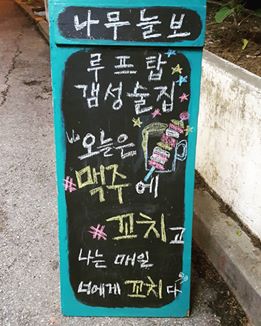 나무늘보
루프탑
갬성술집
오늘은
#맥주에
#꼬치고
나는 매일
너에게 꼬치다